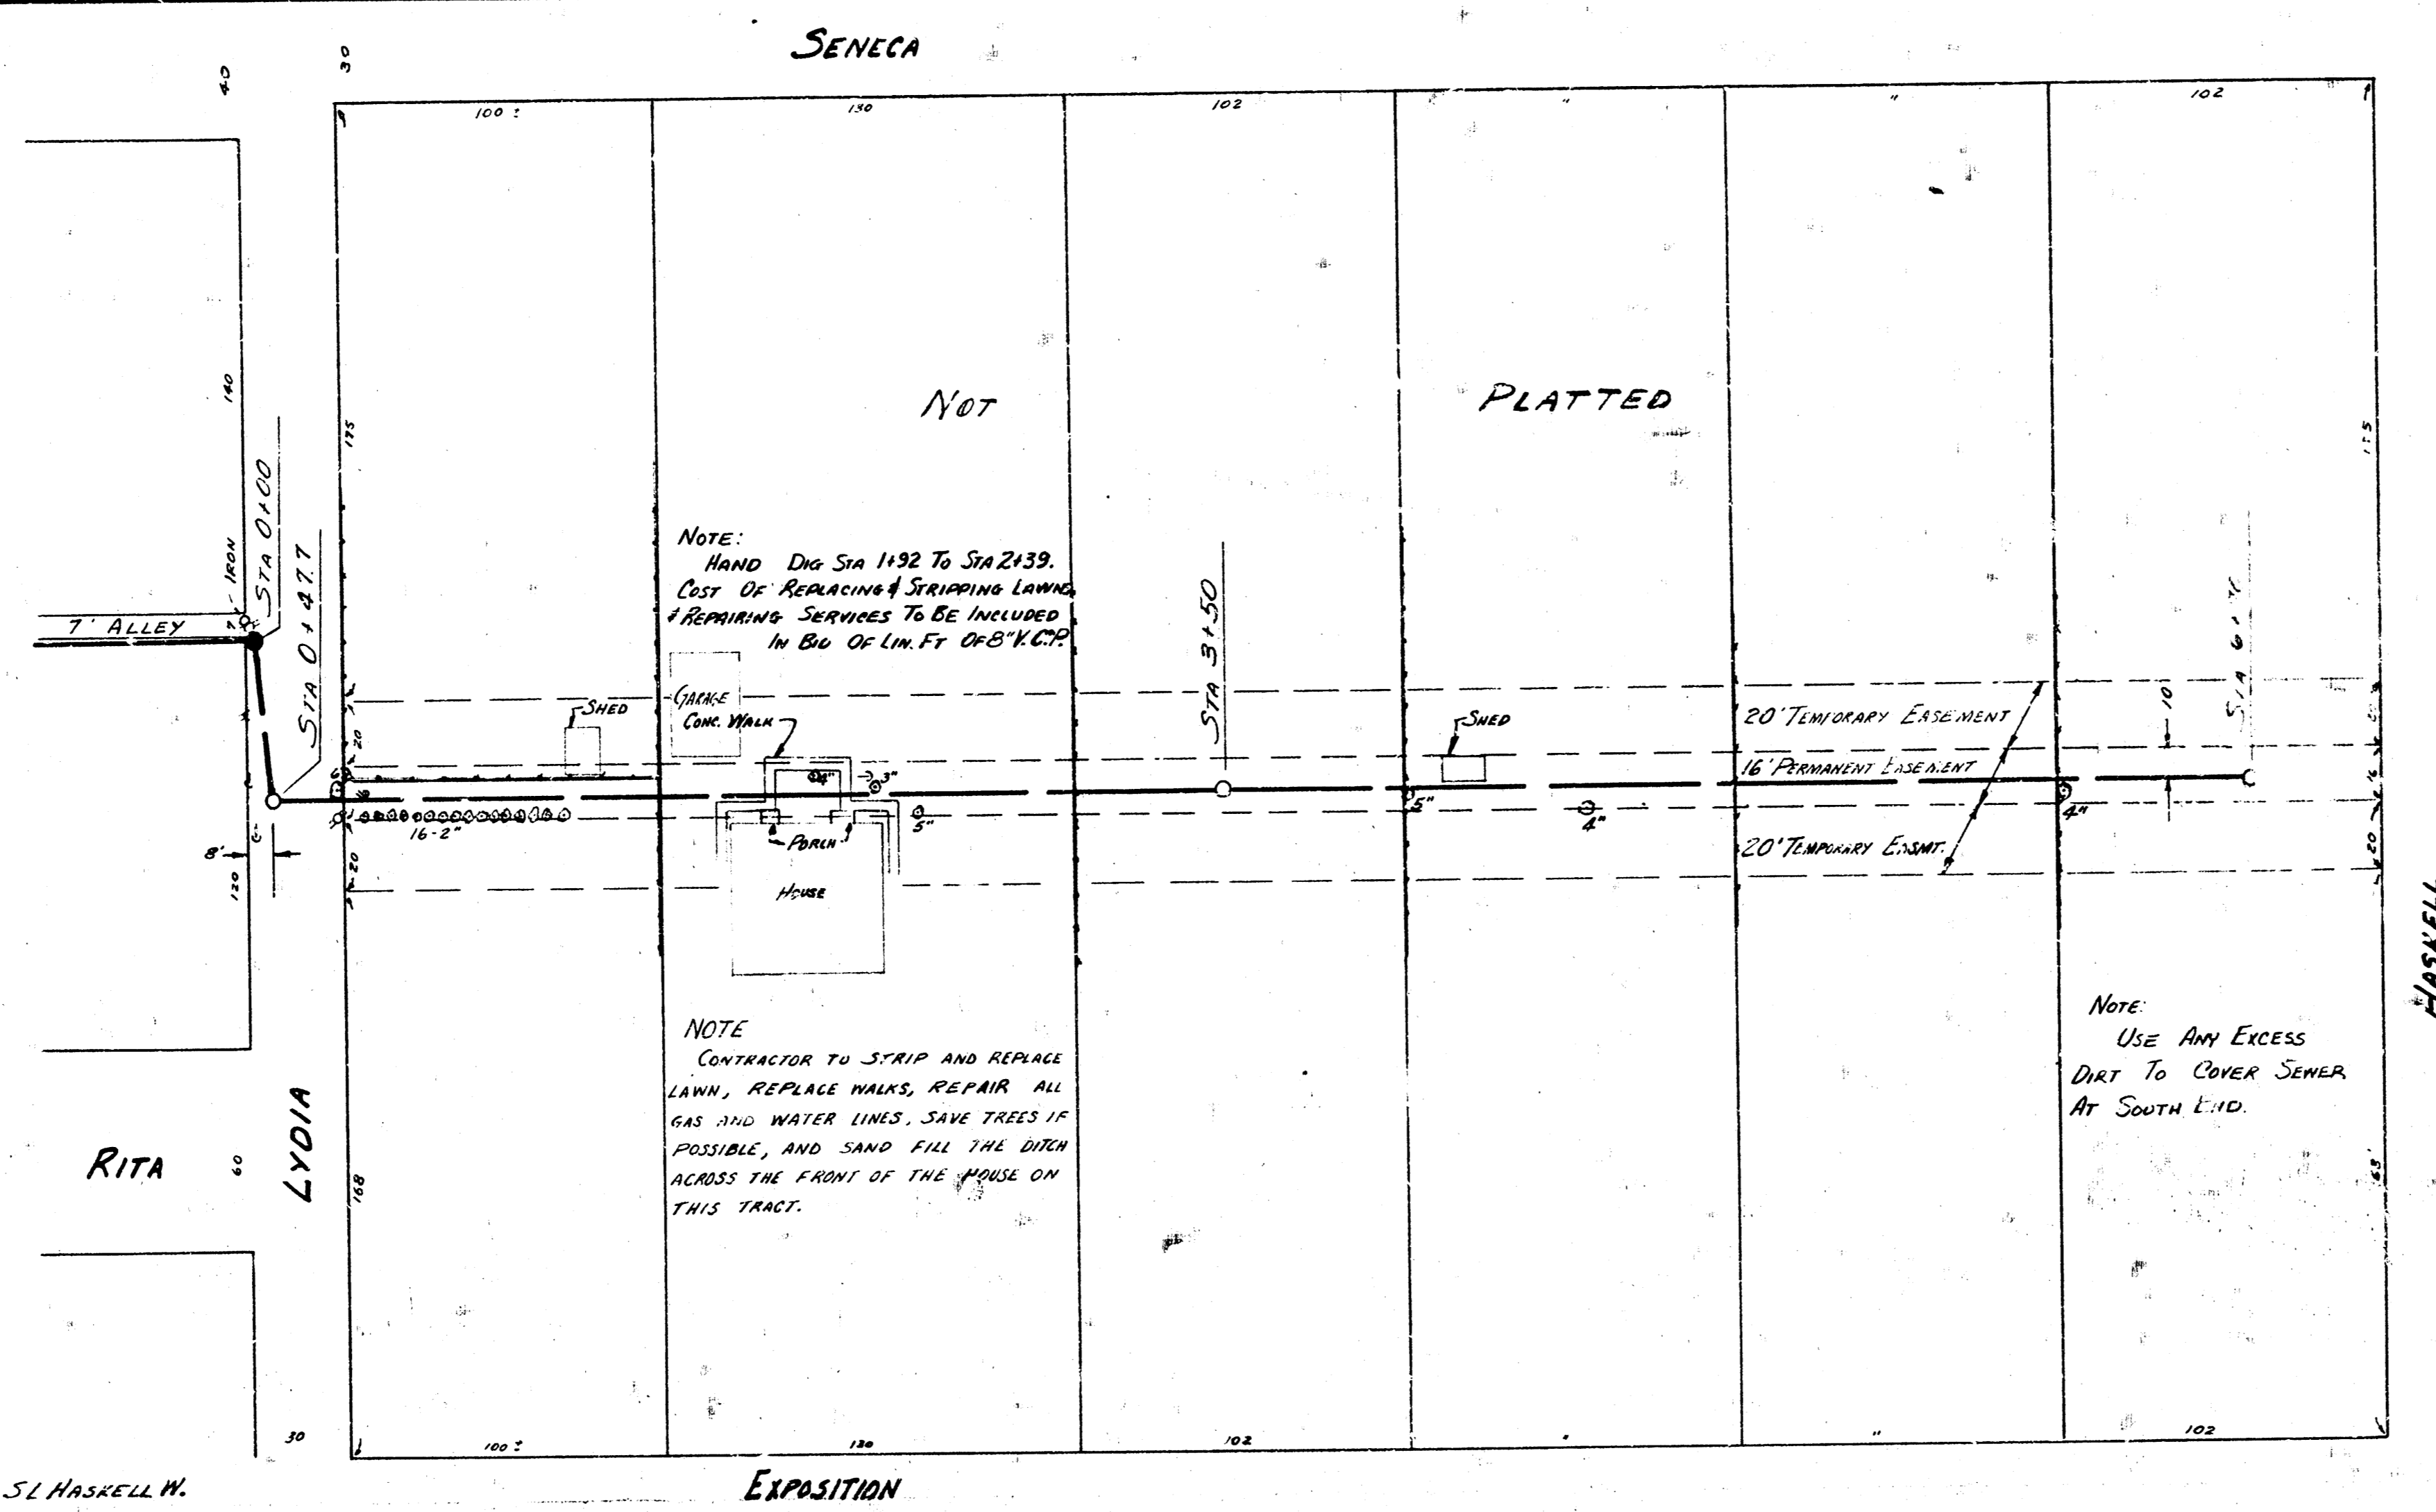 SENECA
40
30
100 ±
130
102
"
"
102
140
175
NOT
PLATTED
STA 0+00
STA 0+47.7
IRON
7' ALLEY
NOTE:
HAND DIG STA 1+92 TO STA 2+39.
COST OF REPLACING & STRIPPING LAWNS
& REPAIRING SERVICES TO BE INCLUDED
IN BID OF LIN. FT OF 8" V.C.P.
STA 3+50
GARAGE
CONC. WALK
SHED
SHED
20' TEMPORARY EASEMENT
16' PERMANENT EASEMENT
20' TEMPORARY EASMT.
10
20
16
20
20
20
4"
3"
5"
5"
4"
4"
16-2"
8'
120
PORCH
HOUSE
HASKELL
NOTE
CONTRACTOR TO STRIP AND REPLACE
LAWN, REPLACE WALKS, REPAIR ALL
GAS AND WATER LINES, SAVE TREES IF
POSSIBLE, AND SAND FILL THE DITCH
ACROSS THE FRONT OF THE HOUSE ON
THIS TRACT.
NOTE:
USE ANY EXCESS
DIRT TO COVER SEWER
AT SOUTH END.
RITA
60
LYDIA
168
30
100 ±
130
102
"
"
102
EXPOSITION
SL HASKELL W.